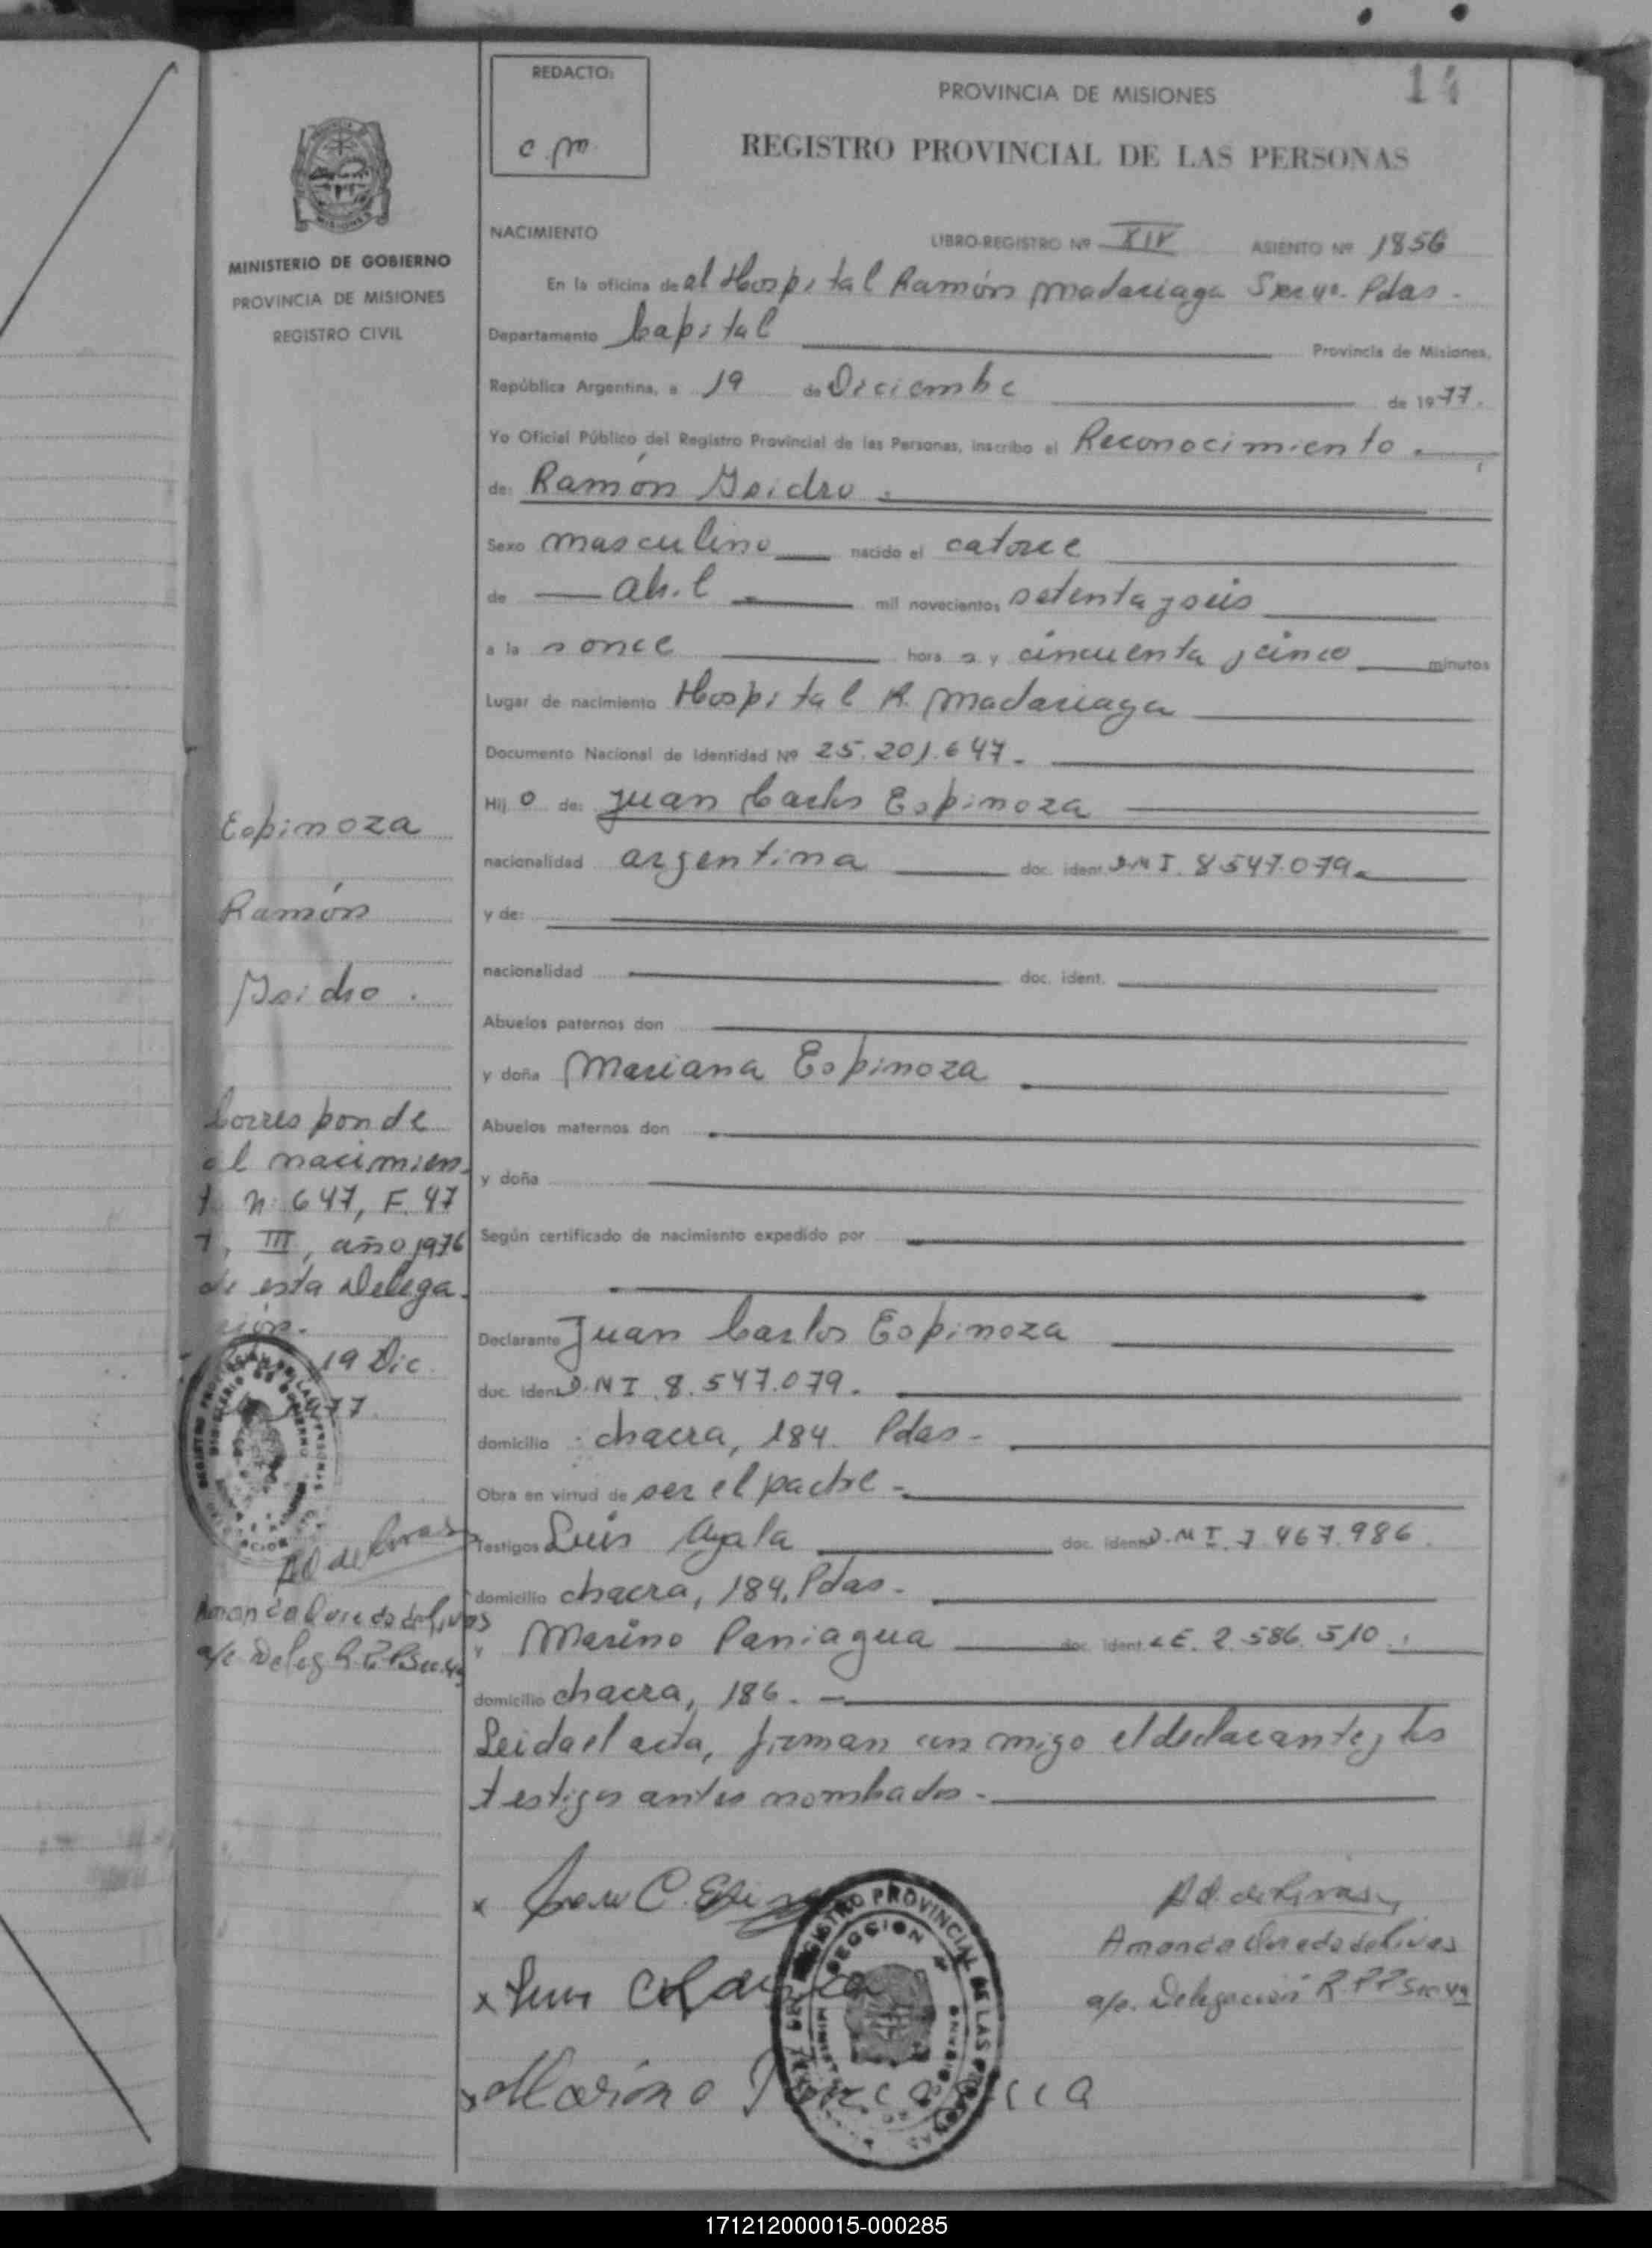 14
REDACTO:
PROVINCIA DE MISIONES
REGISTRO PROVINCIAL DE LAS PERSONAS
MINISTERIO DE GOBIERNO
PROVINCIA DE MISIONES
REGISTRO CIVIL
NACIMIENTO LIBRO-REGISTRO Nº XIV ASIENTO Nº 1856
En la oficina de al Hospital Ramón Madariaga Pdas.
Departamento Capital Provincia de Misiones,
República Argentina, a 19 de Diciembre de 1977.
Yo Oficial Público del Registro Provincial de las Personas, inscribo el Reconocimiento.
de: Ramón Isidro.
Sexo masculino nacido el catorce
de abril mil novecientos setenta y seis
a la s once hora s y cincuenta y cinco minutos
Lugar de nacimiento Hospital R. Madariaga
Documento Nacional de Identidad Nº 25.201.647.
Hij o de: Juan Carlos Espinoza
nacionalidad argentina doc. ident. D.N.I. 8.547.079.
y de:
nacionalidad doc. ident.
Abuelos paternos don
y doña Mariana Espinoza
Abuelos maternos don
y doña
Según certificado de nacimiento expedido por
Declarante Juan Carlos Espinoza
doc. ident. D.N.I. 8.547.079.
domicilio chacra, 184 Pdas.
Obra en virtud de ser el padre.
Testigos Luis Ayala doc. ident. D.N.I. 7.467.986.
domicilio chacra, 184, Pdas.
y Marino Paniagua doc. ident. L.E. 2.586.510.
domicilio chacra, 186.
Leida el acta, firman conmigo el declarante y los
testigos antes nombrados.
Espinoza
Ramón
Isidro.
Corresponde
al nacimien
to n: 647, F. 47
T, III, año 1976
de esta Delega
ción.
19 Dic.
1977.
A D de Rivas
Amanda de Rivas
a/c Deleg R.P.P.
Juan C.
A D. de Rivas
Amanda de Rivas
a/c. Delegación R.P.P.
Luis
Marino
REGISTRO PROVINCIAL DE LAS PERSONAS
171212000015-000285